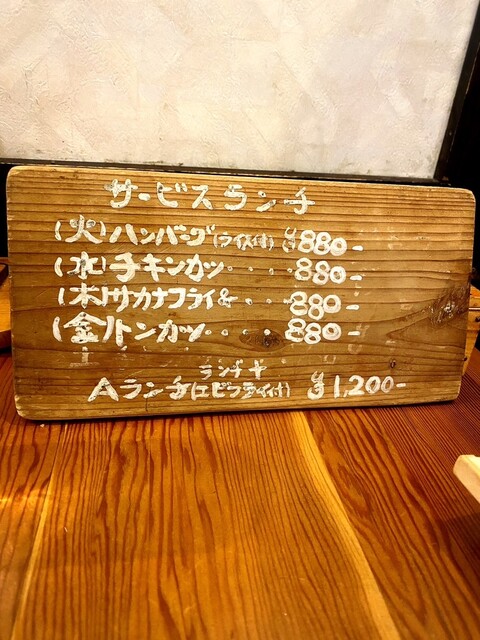 サービスランチ
(火)ハンバーグ(ライス付)¥880-
(水)チキンカツ....880-
(木)サカナフライ&...880-
(金)トンカツ....880-
ランチヤ
Aランチ(エビフライ付)¥1,200-